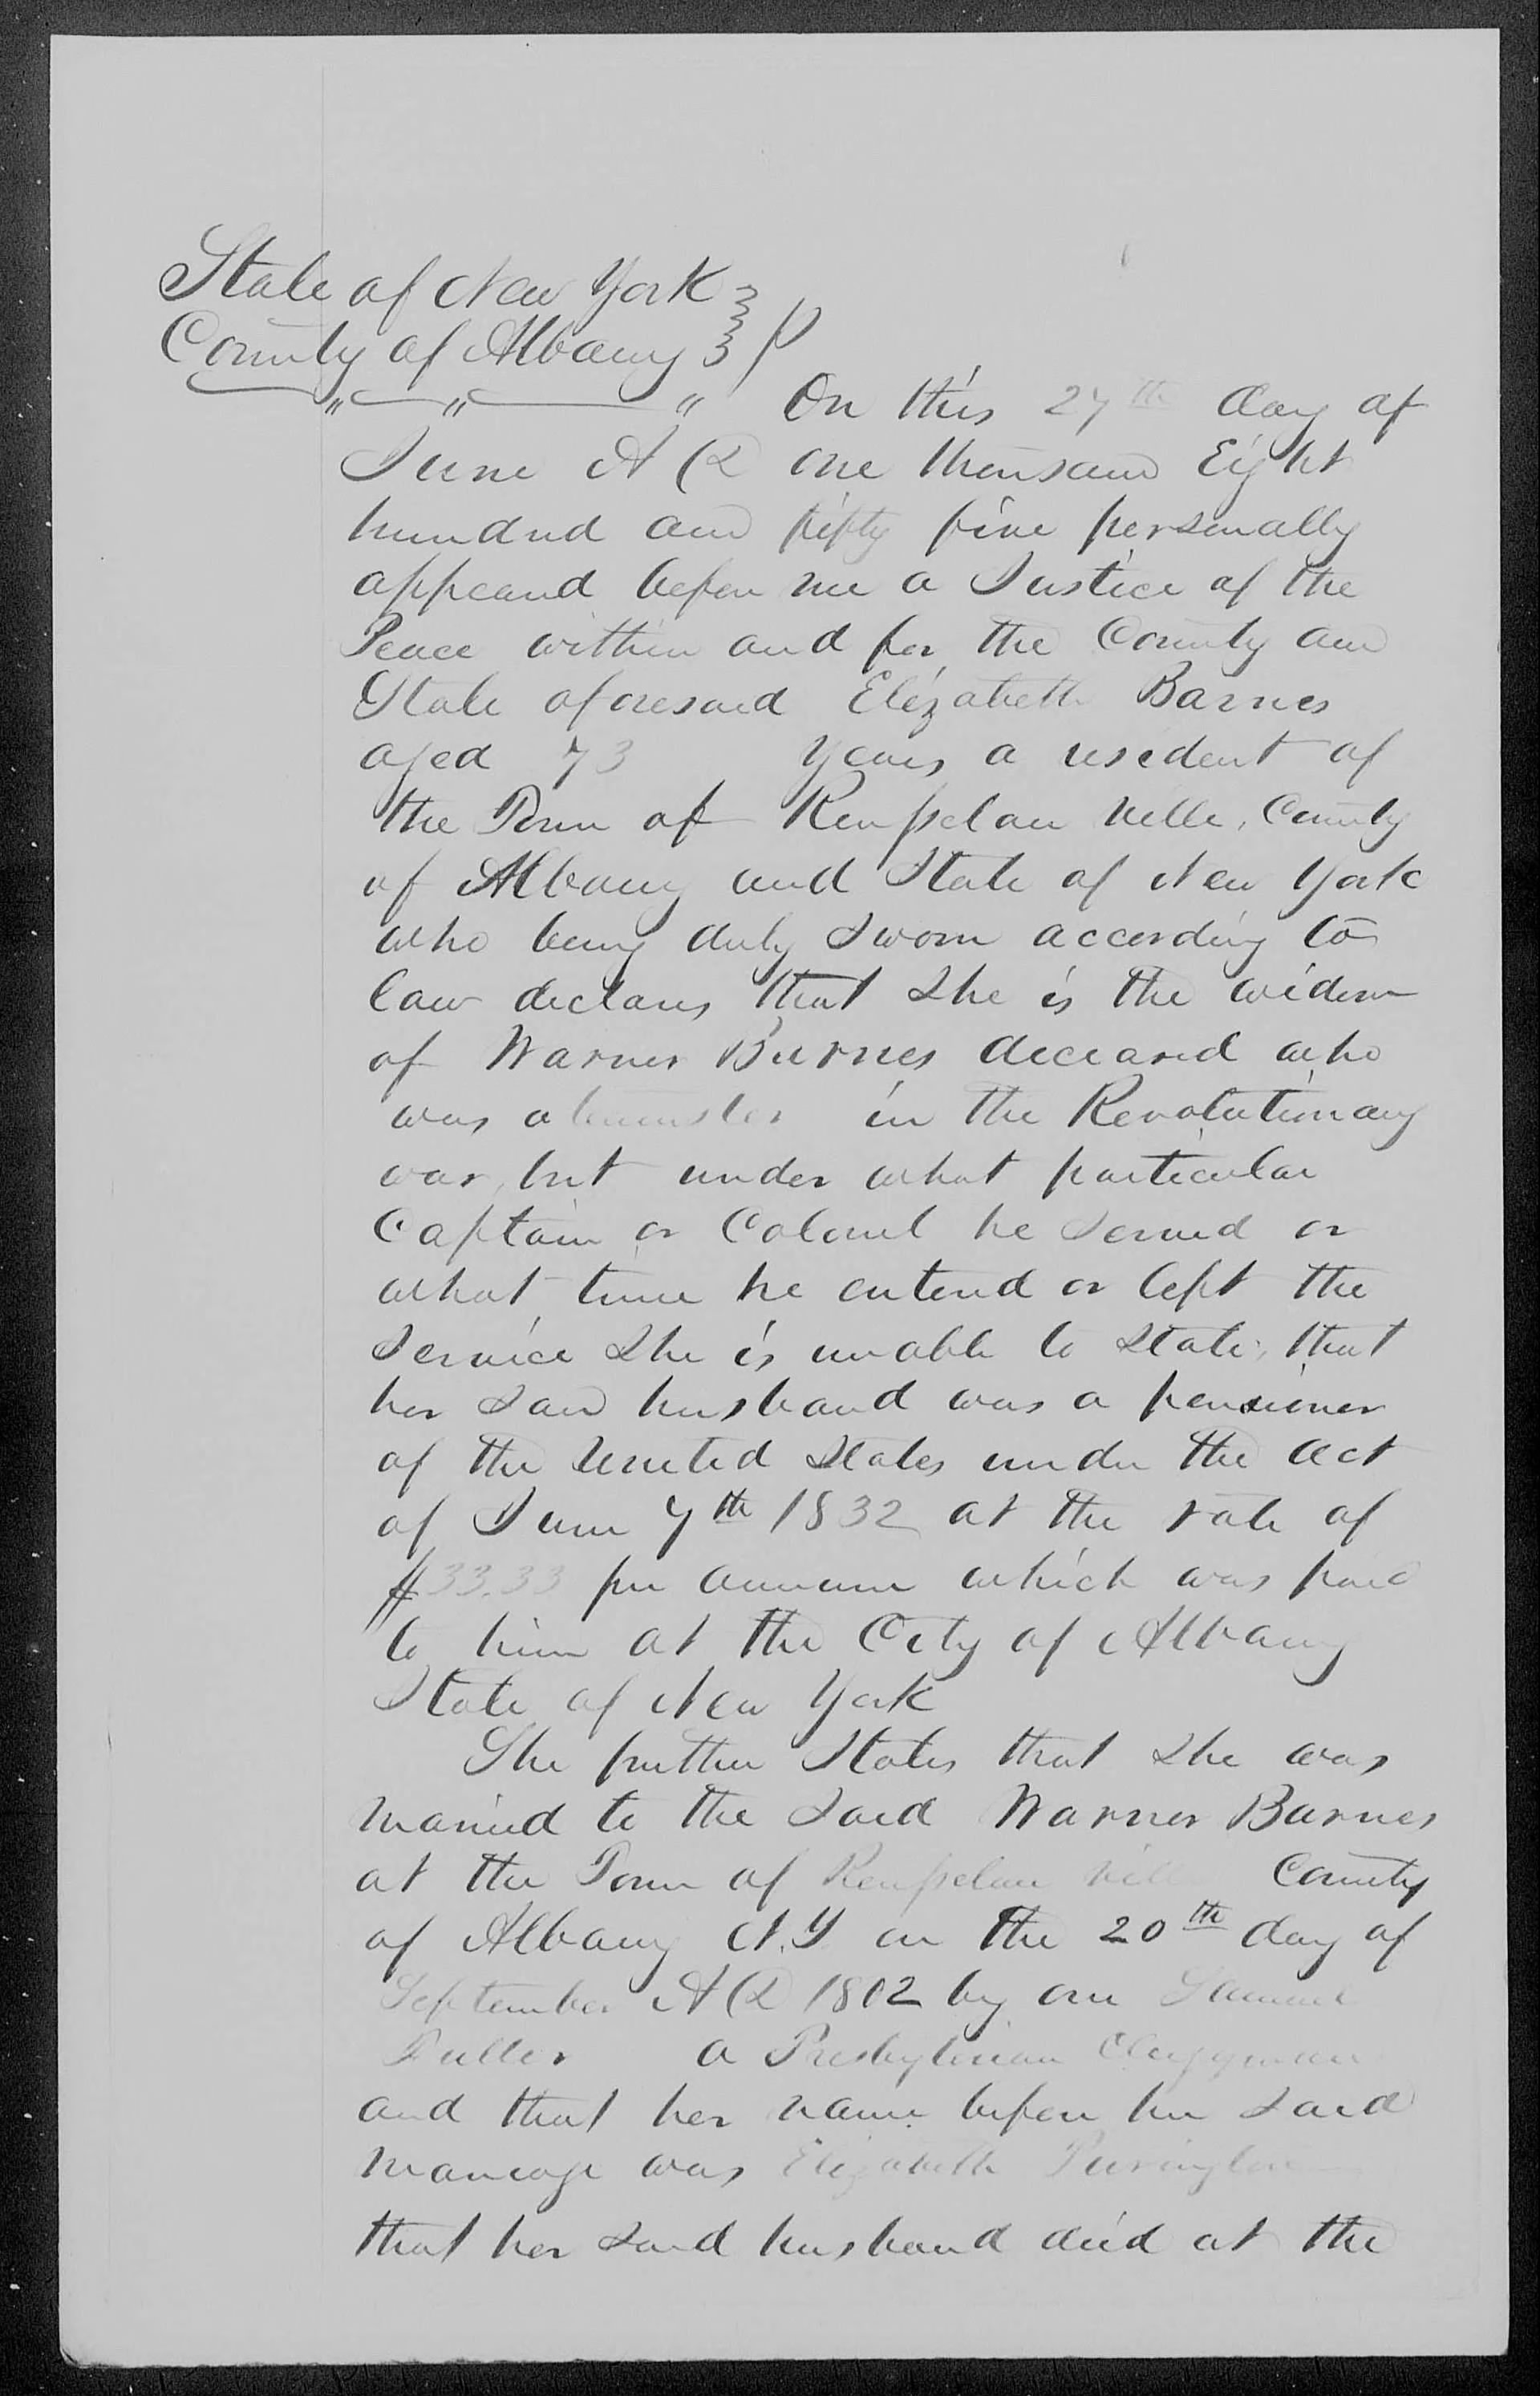 State of New York }
County of Albany } ss
" " " On this 27th day of
June A D one thousand Eight
hundred and fifty five personally
appeared before me a Justice of the
Peace within and for the County and
State aforesaid Elizabeth Barnes
aged 73 years a resident of
the Town of Rensselaer ville, County
of Albany and State of New York
who being duly sworn according to
law declares that she is the widow
of Warner Barnes deceased who
was a teamster in the Revolutionary
war, but under what particular
Captain or Colonel he served or
what time he entered or left the
service she is unable to state; that
her said husband was a pensioner
of the United States under the act
of June 7th 1832 at the rate of
$33.33 per annum which was paid
to him at the City of Albany
State of New York
She further states that she was
married to the said Warner Barnes
at the Town of Rensselaer ville County
of Albany N.Y on the 20th day of
September A D 1802 by one Samuel
Fuller a Presbyterian Clergyman
and that her name before her said
marriage was Elizabeth Purington
that her said husband died at the